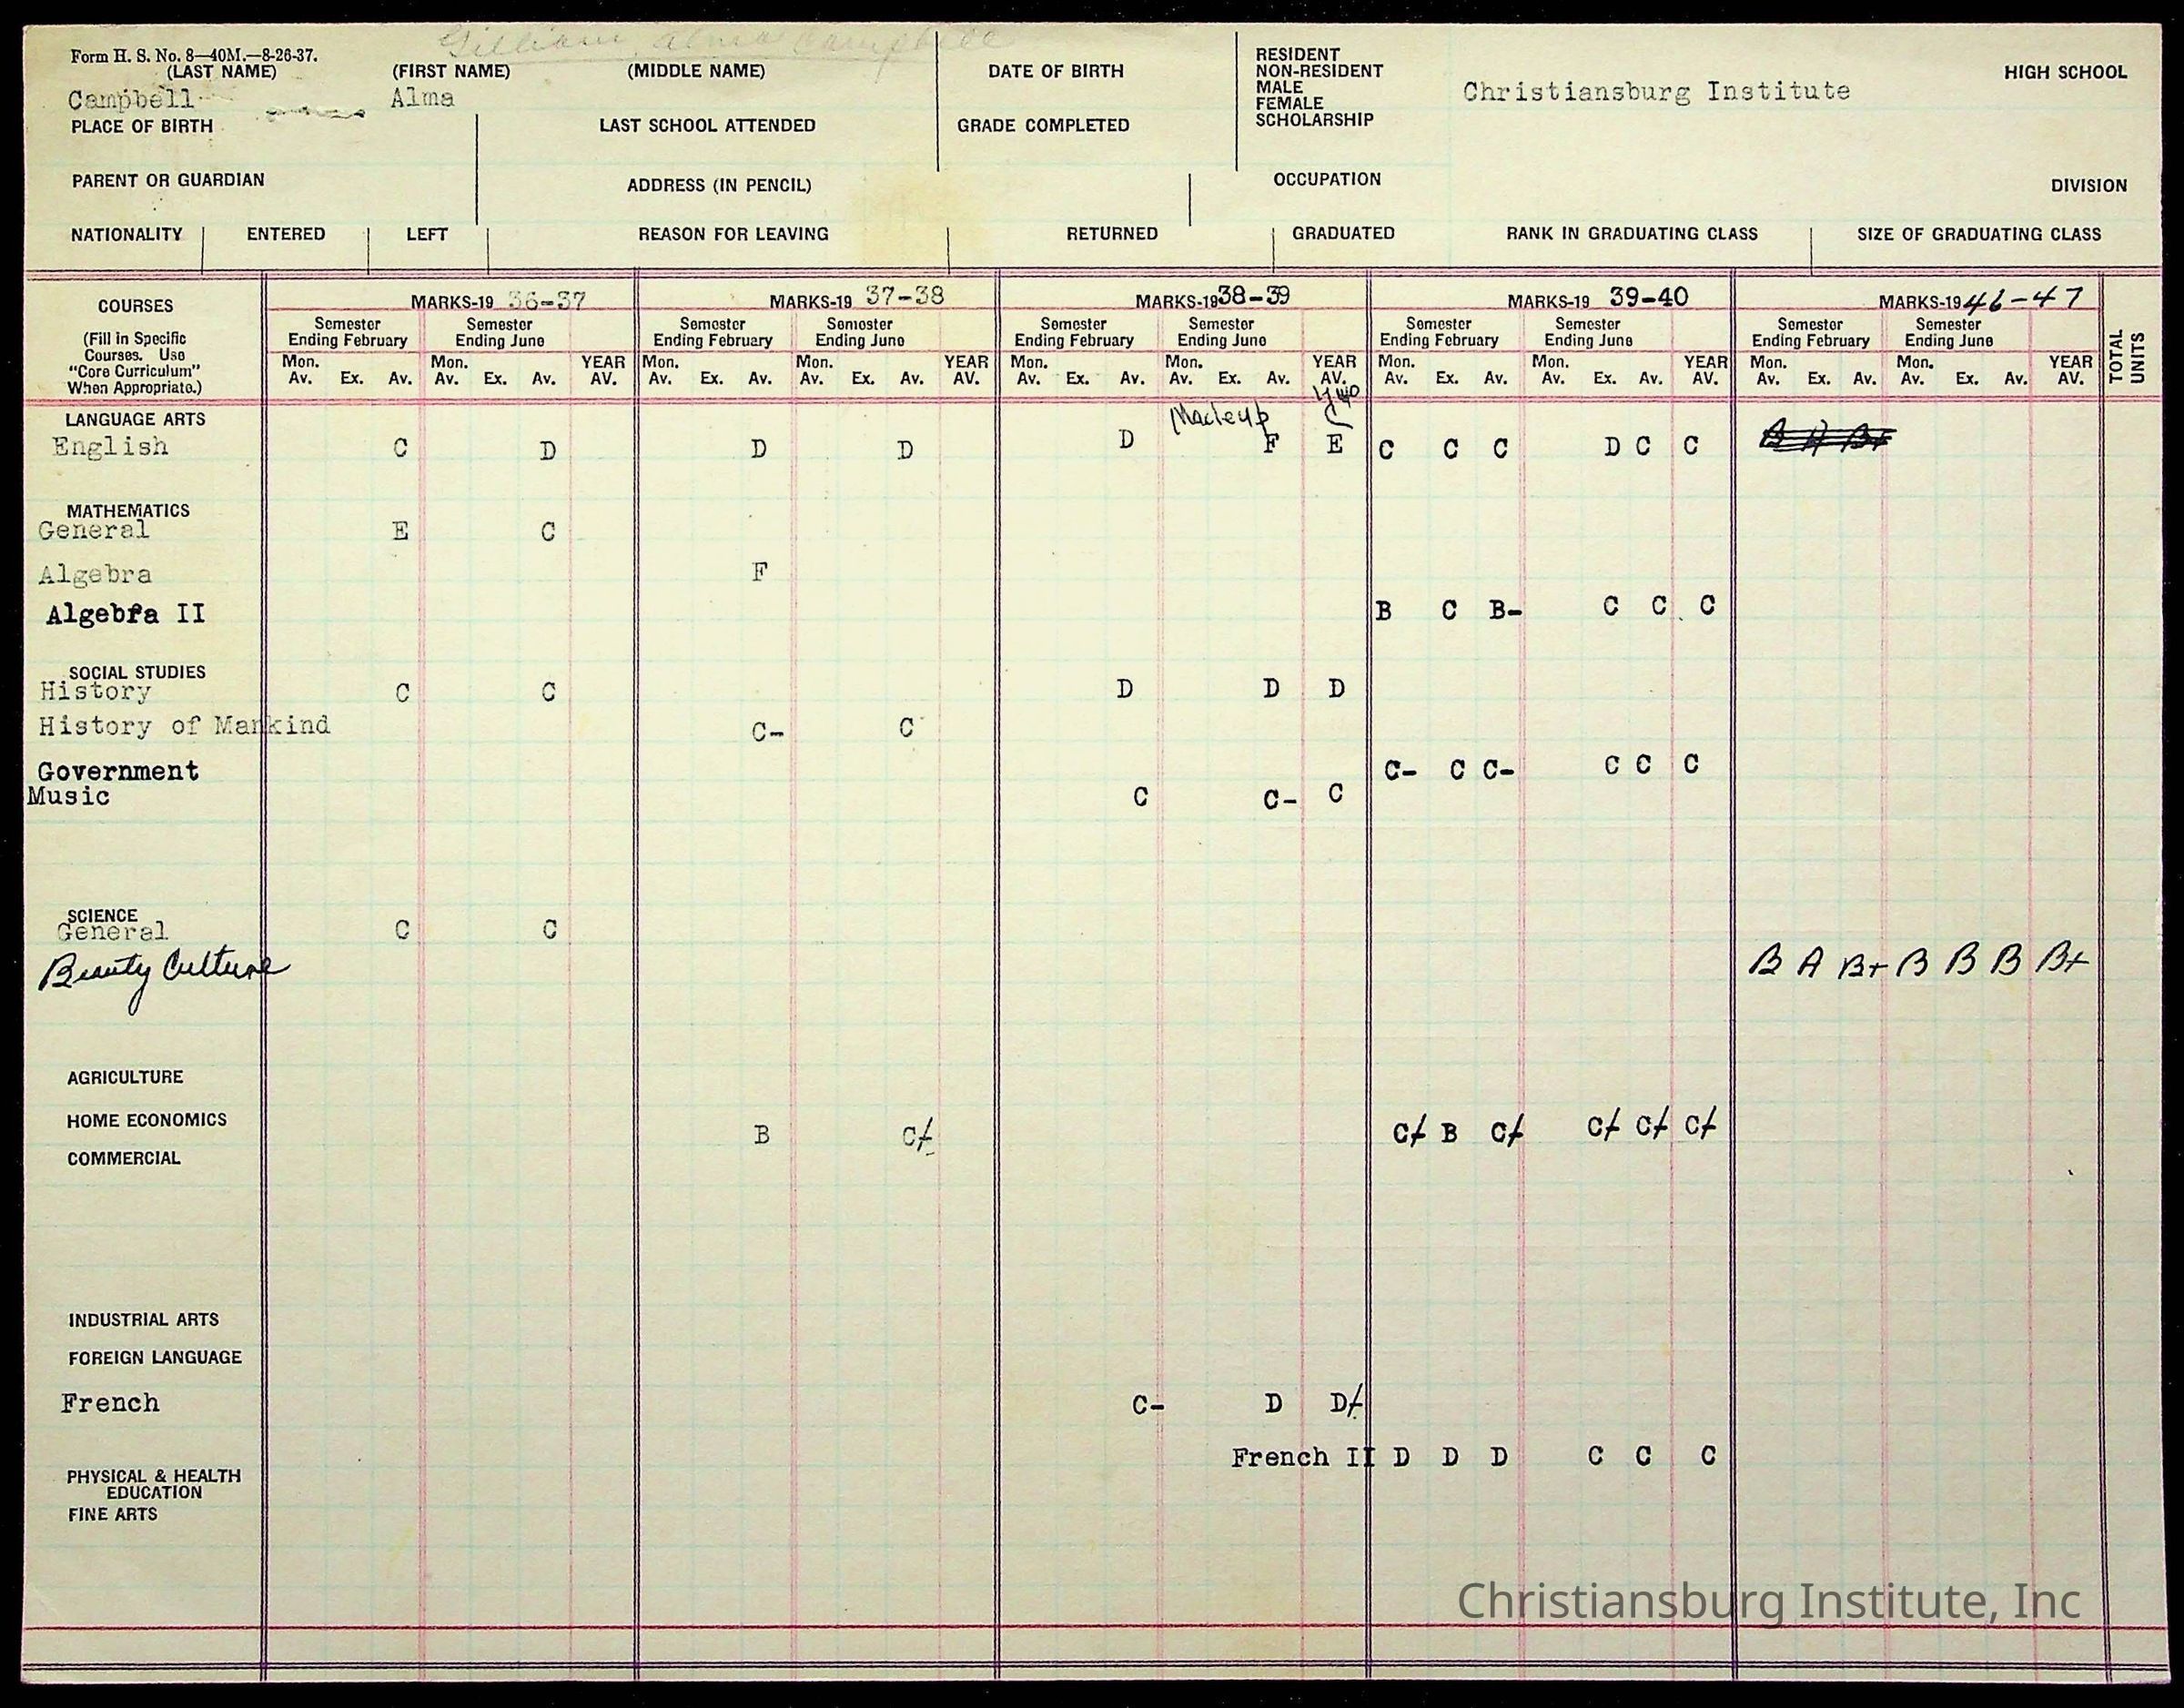 Gilliam, Alma Campbell
Form H. S. No. 8—40M.—8-26-37.
(LAST NAME) (FIRST NAME) (MIDDLE NAME) DATE OF BIRTH
Campbell Alma
RESIDENT
NON-RESIDENT
MALE
FEMALE
SCHOLARSHIP
Christiansburg Institute
HIGH SCHOOL
PLACE OF BIRTH LAST SCHOOL ATTENDED GRADE COMPLETED
PARENT OR GUARDIAN ADDRESS (IN PENCIL) OCCUPATION DIVISION
NATIONALITY ENTERED LEFT REASON FOR LEAVING RETURNED GRADUATED RANK IN GRADUATING CLASS SIZE OF GRADUATING CLASS
COURSES
(Fill in Specific
Courses. Use
"Core Curriculum"
When Appropriate.)
MARKS-19 36-37 MARKS-19 37-38 MARKS-19 38-39 MARKS-19 39-40 MARKS-19 46-47
Semester Semester Semester Semester Semester Semester Semester Semester Semester Semester
Ending February Ending June Ending February Ending June Ending February Ending June Ending February Ending June Ending February Ending June
Mon. Mon. YEAR Mon. Mon. YEAR Mon. Mon. YEAR Mon. Mon. YEAR Mon. Mon. YEAR
Av. Ex. Av. Av. Ex. Av. AV. Av. Ex. Av. Av. Ex. Av. AV. Av. Ex. Av. Av. Ex. Av. AV. Av. Ex. Av. Av. Ex. Av. AV. Av. Ex. Av. Av. Ex. Av. AV.
TOTAL
UNITS
LANGUAGE ARTS
Makeup
English C D D D D F E C C C D C C B A B+
MATHEMATICS
General E C
Algebra F
Algebra II B C B- C C C
SOCIAL STUDIES
History C C D D D
History of Mankind C- C
Government C- C C- C C C
Music C C- C
SCIENCE
General C C
Beauty Culture B A B+ B B B B+
AGRICULTURE
HOME ECONOMICS B C/ C/ B C/ C/ C/ C/
COMMERCIAL
INDUSTRIAL ARTS
FOREIGN LANGUAGE
French C- D D/
French II D D D C C C
PHYSICAL & HEALTH
EDUCATION
FINE ARTS
Christiansburg Institute, Inc